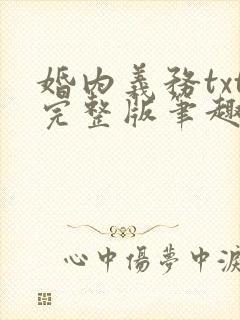 婚内義務txt
完整版筆趣
心中傷夢中淚